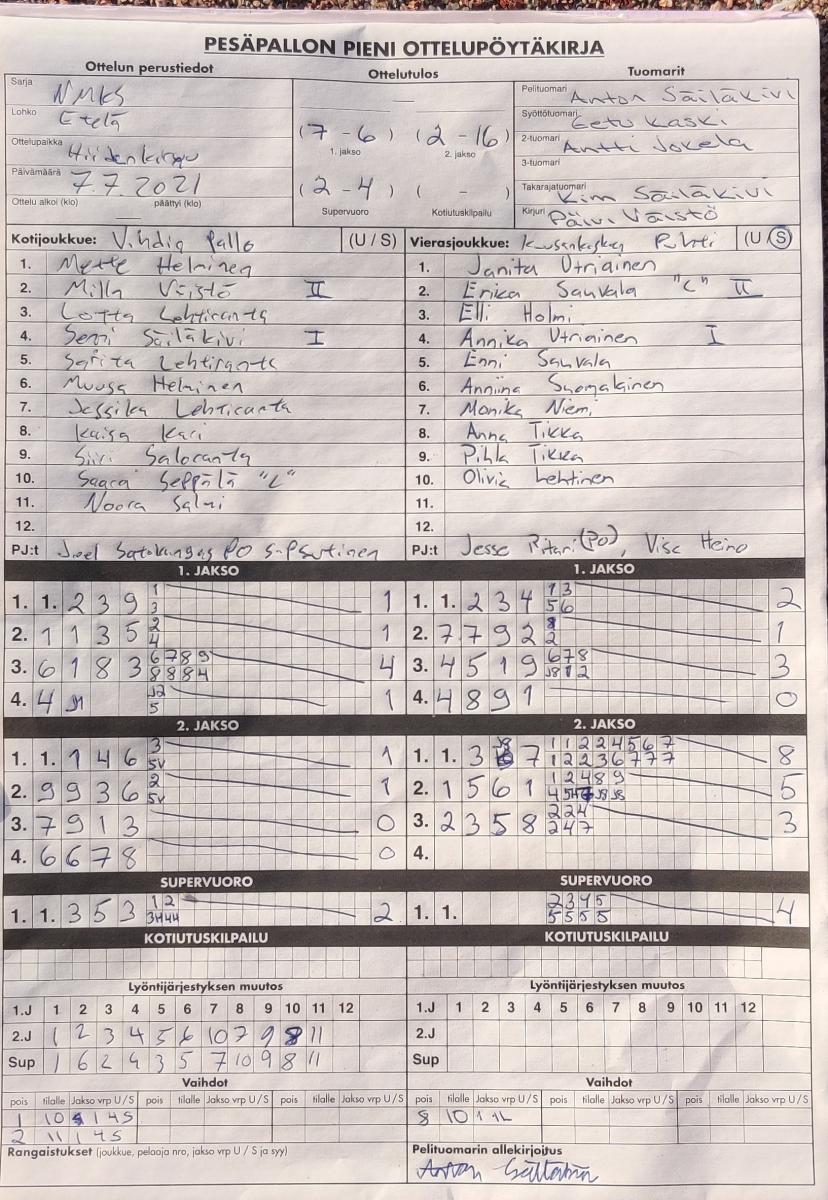 PESÄPALLON PIENI OTTELUPÖYTÄKIRJA
Ottelun perustiedot Ottelutulos Tuomarit
Sarja NMKS
Lohko Etelä
Ottelupaikka
Päivämäärä 7.7.2021
Ottelu alkoi (klo) päättyi (klo)
(7 - 6) (2 - 16)
1. jakso 2. jakso
(2 - 4) ( - )
Supervuoro Kotiutuskilpailu
Pelituomari Anton Säiläkivi
Syöttötuomari Eetu Kaski
2-tuomari Antti Jokela
3-tuomari
Takarajatuomari Kim Säiläkivi
Kirjuri Päivi Väistö
Kotijoukkue: Vihdin Pallo (U / S)
1. Mette Helminen
2. Milla Väistö II
3. Lotta Lehtiranta
4. Senni Säiläkivi I
5. Sarita Lehtiranta
6. Muusa Helminen
7. Jessika Lehtiranta
8. Kaisa Kari
9. Siiri Saloranta
10. Saara Seppälä "C"
11. Noora Salmi
12.
PJ:t Joel
Vierasjoukkue: Kouvolan Puhti (U / S)
1. Janita Utriainen
2. Erica Sauvala "C" II
3. Elli Holmi
4. Annika Utriainen I
5. Enni Sauvala
6. Anniina Suomalainen
7. Monika Niemi
8. Anna Tikka
9. Pihla Tikka
10. Olivia Lehtinen
11.
12.
PJ:t Jesse Ritari (PO), Visa Heino
1. JAKSO
1. 1. 2 3 9 1 3 1
2. 1 1 3 5 2 4 1
3. 6 1 8 3 6 7 8 9 8 8 8 4 4
4. 4 5 1
1. JAKSO
1. 1. 2 3 4 1 3 5 6 2
2. 7 7 9 2 2 1
3. 4 5 1 9 6 7 8 3
4. 4 8 9 1 0
2. JAKSO
1. 1. 1 4 6 3 5V 1
2. 9 9 3 6 2 5V 1
3. 7 9 1 3 0
4. 6 6 7 8 0
2. JAKSO
1. 1. 3 7 1 1 2 2 4 5 6 7 1 2 2 3 6 7 7 7 8
2. 1 5 6 1 1 2 4 8 9 5
3. 2 3 5 8 2 2 4 2 4 7 3
4.
SUPERVUORO
1. 1. 3 5 3 1 2 2
SUPERVUORO
1. 1. 2 3 4 5 5 5 5 5 4
KOTIUTUSKILPAILU
KOTIUTUSKILPAILU
Lyöntijärjestyksen muutos
1.J 1 2 3 4 5 6 7 8 9 10 11 12
2.J 1 2 3 4 5 6 10 7 9 8 11
Sup 1 6 2 4 3 5 7 10 9 8 11
Lyöntijärjestyksen muutos
1.J 1 2 3 4 5 6 7 8 9 10 11 12
2.J
Sup
Vaihdot
pois tilalle Jakso vrp U / S pois tilalle Jakso vrp U / S pois tilalle Jakso vrp U / S
1 10 1 4S
2 11 1 4S
Vaihdot
pois tilalle Jakso vrp U / S pois tilalle Jakso vrp U / S pois tilalle Jakso vrp U / S
8 10 1
Rangaistukset (joukkue, pelaaja nro, jakso vrp U / S ja syy)
Pelituomarin allekirjoitus